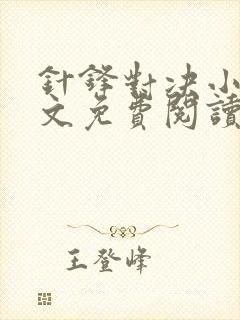 針鋒對決小
文免費閱讀
王登峰